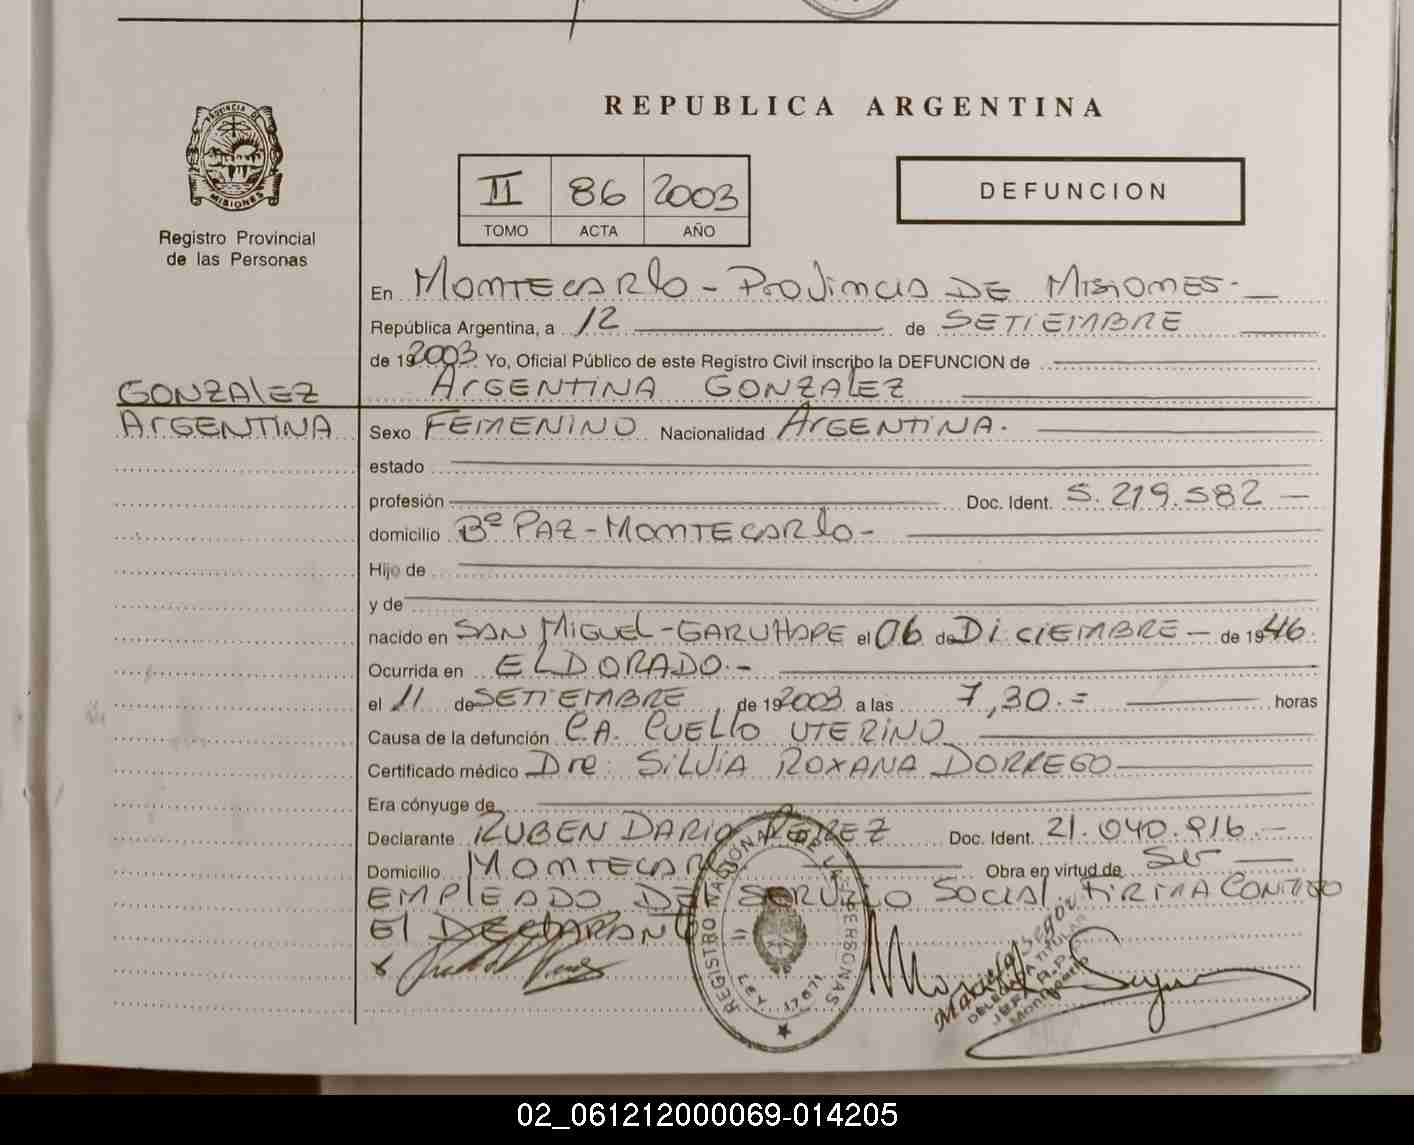 REPUBLICA ARGENTINA
PROVINCIA DE
MISIONES
Registro Provincial
de las Personas
II 86 2003
TOMO ACTA AÑO
DEFUNCION
En MONTECARLO - PROVINCIA DE MISIONES.-
República Argentina, a 12 de SETIEMBRE
de 192003 Yo, Oficial Público de este Registro Civil inscribo la DEFUNCION de
GONZALEZ
ARGENTINA GONZALEZ
ARGENTINA
Sexo FEMENINO Nacionalidad ARGENTINA.
estado
profesión Doc. Ident. 5.219.582 -
domicilio Bº PAZ - MONTECARLO -
Hijo de
y de
nacido en SAN MIGUEL - GARUHAPE el 06 de DICIEMBRE - de 1946.
Ocurrida en ELDORADO.-
el 11 de SETIEMBRE de 192003 a las 7,30.= horas
Causa de la defunción CA. CUELLO UTERINO
Certificado médico Dra. SILVIA ROXANA DORREGO
Era cónyuge de
Declarante RUBEN DARIO PEREZ Doc. Ident. 21.040.916.-
Domicilio MONTECARLO Obra en virtud de Ser
EMPLEADO DEL SERVICIO SOCIAL FIRMA CONMIGO
El DECLARANTE
REGISTRO NACIONAL DE LAS PERSONAS
LEY 17671
DELEGADA TITULAR
Montecarlo
02_061212000069-014205